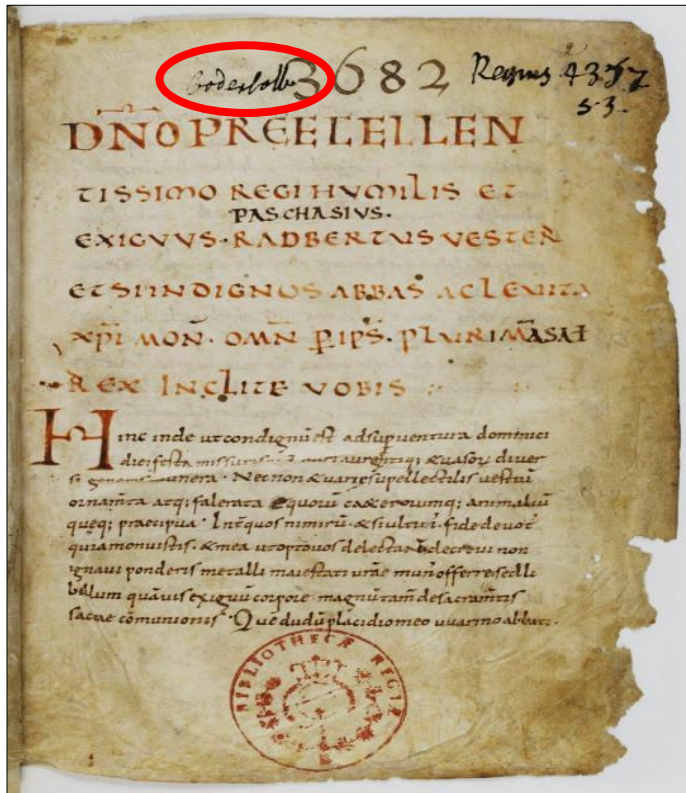 3682 Regius
5 3.
DÑO PRECELLEN
TISSIMO REGI HVMILIS ET
PASCHASIVS.
EXIGVVS · RADBERTUS VESTER
ET SI INDIGNUS ABBAS AC LEVITA
XP̄I MON̄. OMN̄ P̱ IPS̄. PLVRIM̄AS AT
REX INCLITE VOBIS
Hinc inde ut condignū est adsup uentura dominici
diei festa missuri & uasorū diuer
si generis munera · Nec non & uarie supellectilis uestiū
ornam̄ta atq; falerata equorū animaliū
queq; praecipua · Int quos nimirū & si fide deuot
quia monuistis. & mea ut opto uos decreui non
ignaui ponderis metalli maiestati ur̄ae mun̄ offerre sed li
bellum quāuis exiguū corpore · magnū tam̄ de sacram̄tis
sacrae cōmunionis · Que dudū placidio meo uuarino abbati.
BIBLIOTHECÆ REGIÆ